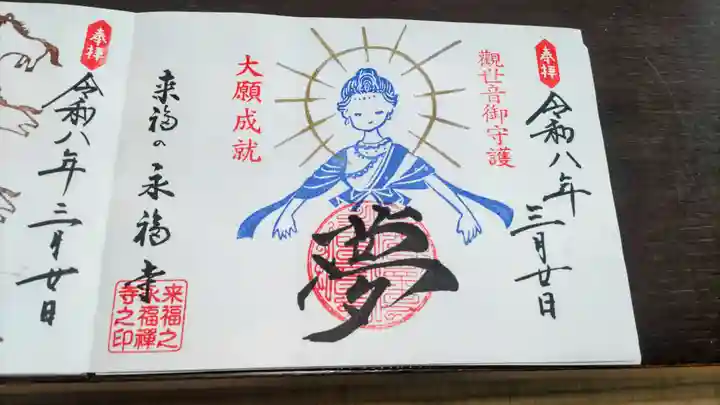 奉拝
令和八年三月廿日
觀世音御守護
夢
大願成就
来福の永福寺
来福之
永福禅
寺之印
奉拝
令和八年三月廿日